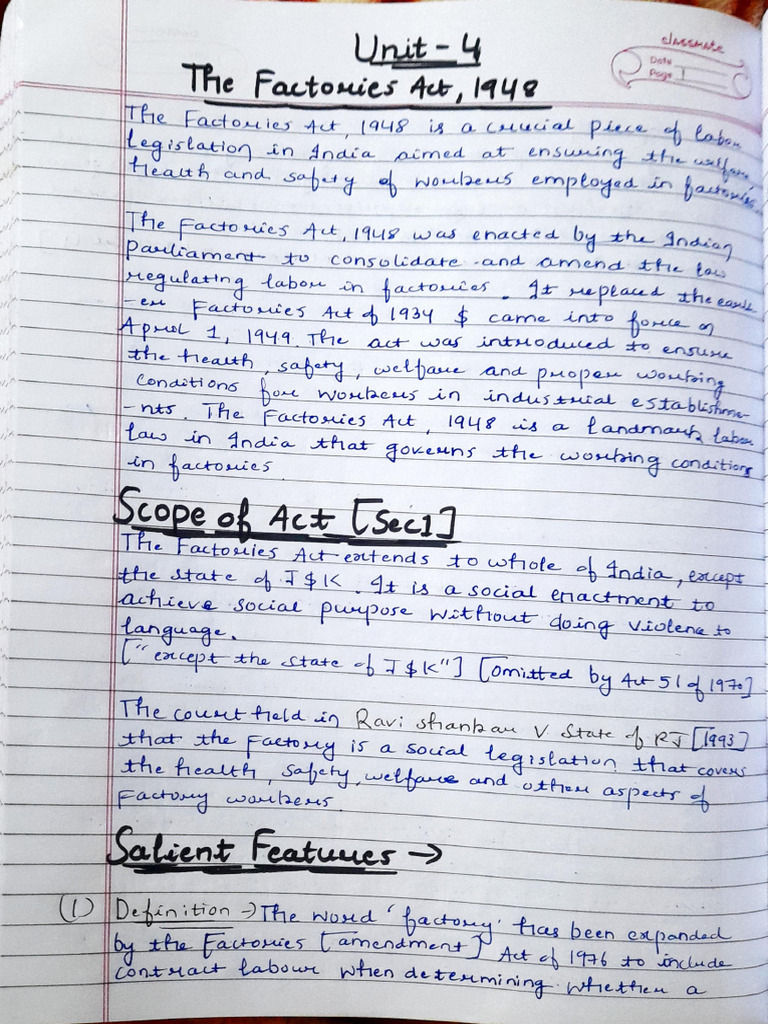 Unit - 4
classmate
Date
Page 1
The Factories Act, 1948
The Factories Act, 1948 is a crucial piece of labour
legislation in India aimed at ensuring the welfare,
health and safety of workers employed in factories.
The Factories Act, 1948 was enacted by the Indian
Parliament to consolidate and amend the law
regulating labor in factories. It replaced the earli
-er Factories Act of 1934 & came into force on
April 1, 1949. The act was introduced to ensure
the health, safety, welfare and proper working
conditions for workers in industrial establishme-
-nts. The Factories Act, 1948 is a landmark labour
law in India that governs the working conditions
in factories.
Scope of Act [Sec1]
The Factories Act extends to whole of India, except
the state of J&K. It is a social enactment to
achieve social purpose without doing violence to
language.
["except the state of J&K"] [omitted by Act 51 of 1970]
The court held in Ravi Shankar V. State of RJ [1993]
that the factory is a social legislation that covers
the health, safety, welfare and other aspects of
factory workers.
Salient Features →
(1) Definition → The word 'factory' has been expanded
by the Factories [amendment] Act of 1976 to include
contract labour when determining whether a